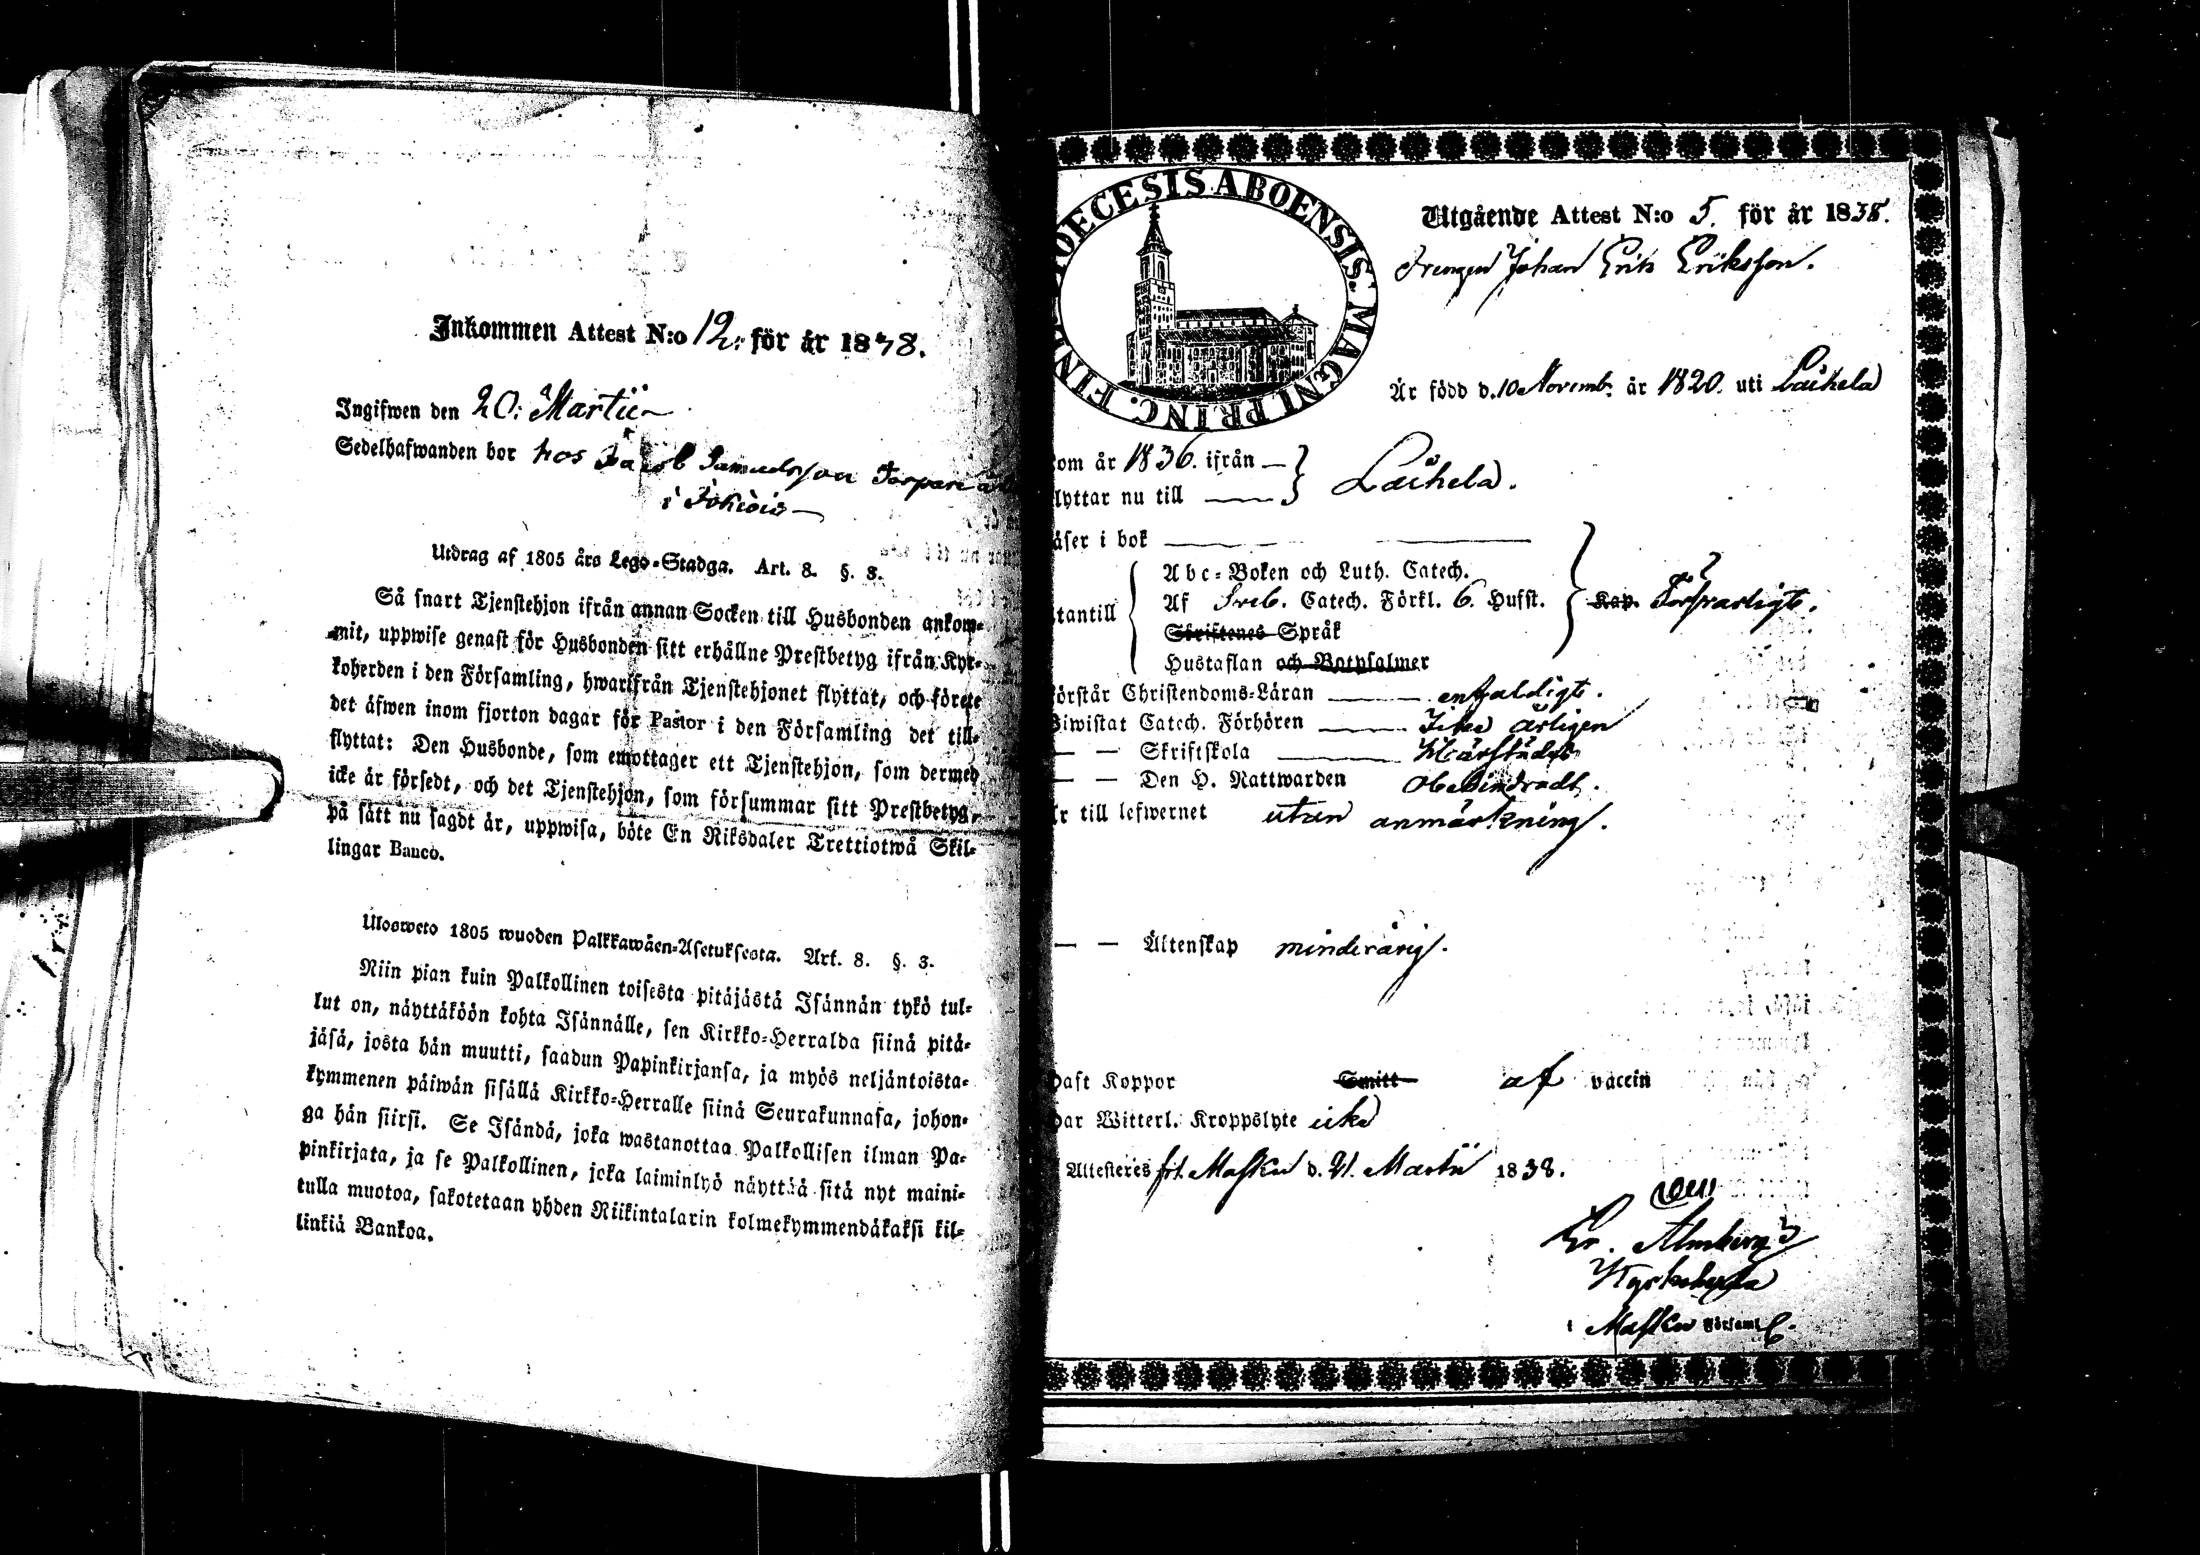 Inkommen Attest N:o 12. för år 1838.
Ingifwen den 20. Martii
Sedelhafwanden bor hos Jacob Samuelsson Torpare
i Jokiois
Utdrag af 1805 års Lego-Stadga. Art. 8. §. 3.
Så snart Tjenstehjon ifrån annan Socken till Husbonden ankom-
mit, uppwise genast för Husbonden sitt erhållne Prestbetyg ifrån Kyr-
koherden i den Församling, hwarifrån Tjenstehjonet flyttat, och förete
det äfwen inom fjorton dagar för Pastor i den Församling det till-
flyttat: Den Husbonde, som emottager ett Tjenstehjon, som dermed
icke är försedt, och det Tjenstehjon, som försummar sitt Prestbetyg,
på sätt nu sagdt är, uppwisa, böte En Riksdaler Trettiotwå Skil-
lingar Banco.
Ulosweto 1805 wuoden Palkkawäen-Asetuksesta. Art. 8. §. 3.
Niin pian kuin Palkollinen toisesta pitäjästä Isännän tykö tul-
lut on, näyttäköön kohta Isännälle, sen Kirkko-Herralda siinä pitä-
jäsä, josta hän muutti, saadun Papinkirjansa, ja myös neljäntoista-
kymmenen päiwän sisällä Kirkko-Herralle siinä Seurakunnasa, johon-
ga hän siirsi. Se Isändä, joka wastanottaa Palkollisen ilman Pa-
pinkirjata, ja se Palkollinen, joka laiminlyö näyttää sitä nyt maini-
tulla muotoa, sakotetaan yhden Riikintalarin kolmekymmendäkaksi kil-
linkiä Bankoa.
DIOECESIS ABOENSIS. MAGNI PRINC. FINL.
Utgående Attest N:o 5. för år 1838.
Drengen Johan Erik Eriksson.
Är född d. 10 Novemb. år 1820. uti Laihela
om år 1836. ifrån
lyttar nu till Laihela.
äser i bok
Abc-Boken och Luth. Catech.
Af Sveb. Catech. Förkl. 6. Hufst. Kap. Försvarligt.
tantill
Skriftenes Språk
Hustaflan och Botpsalmer
örstår Christendoms-Läran enfaldigt.
Biwistat Catech. Förhören Icke årligen
— — Skriftskola
— — Den H. Nattwarden Obehindradt.
r till lefwernet utan anmärkning.
— — Äktenskap minderårig.
haft Koppor Smitt af vaccin
har Witterl. Kroppslyte icke
Attesteres frt. Masku d. 21. Martii 1838.
Er. Almberg
Kyrkoherde
i Masku Församl.